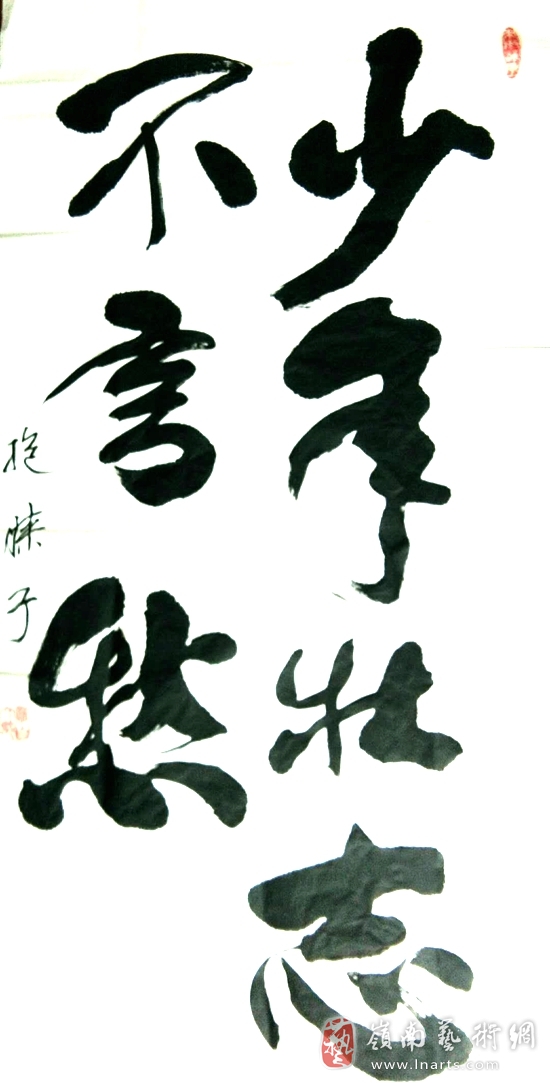 少年壮志
不言愁
抱朴子
嶺南藝術網
www.lnarts.com